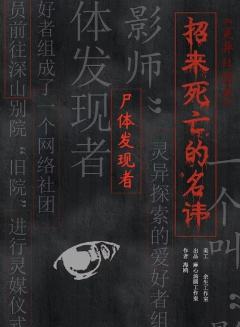 招来死亡的名讳
美工 余生工作室
作者 海鸥
一个叫
灵异探索的爱好者组
影师”
尸体发现者
体发现者
好者组成了一个网络社团
员前往深山别院“旧院”进行灵媒仪式